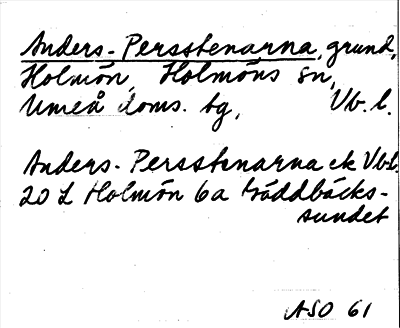 Anders-Persstenarna, grund,
Holmön, Holmöns sn,
Umeå doms. tg, Vb. l.
Anders-Persstenarna ek Vb.l.
20 L Holmön 6a Gäddbäcks-
sundet
ASO 61